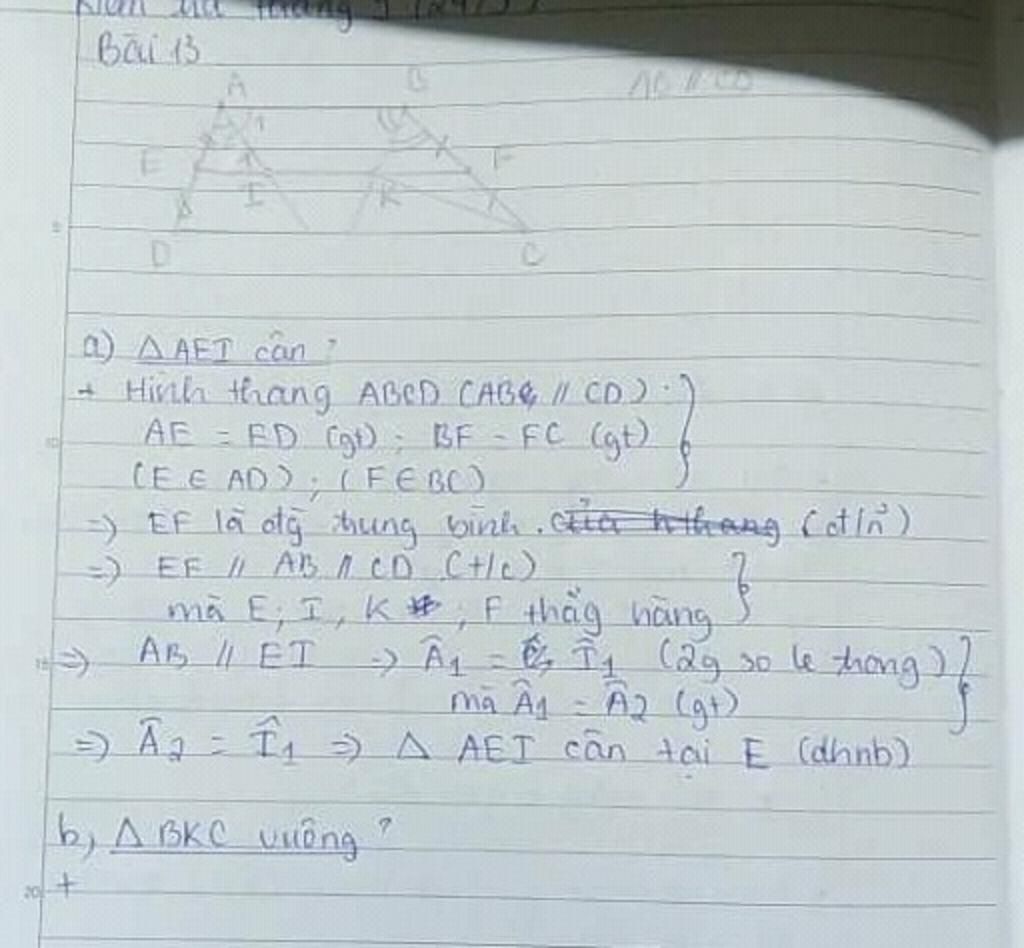 Bài 13
A B AB // CD
1
E 1 F
I K
D C
5
a) △AEI cân ?
+ Hình thang ABCD (AB // CD).
10
AE = ED (gt); BF = FC (gt)
(E ∈ AD); (F ∈ BC)
=> EF là đg trung bình. của hthang (đ/n̉)
=> EF // AB // CD (t/c)
mà E; I, K ; F thẳg hàng
15 => AB // EI => Â1 = Î1 (2g so le trong)
mà Â1 = Â2 (gt)
=> Â2 = Î1 => △ AEI cân tại E (dhnb)
b, △BKC vuông ?
20 +